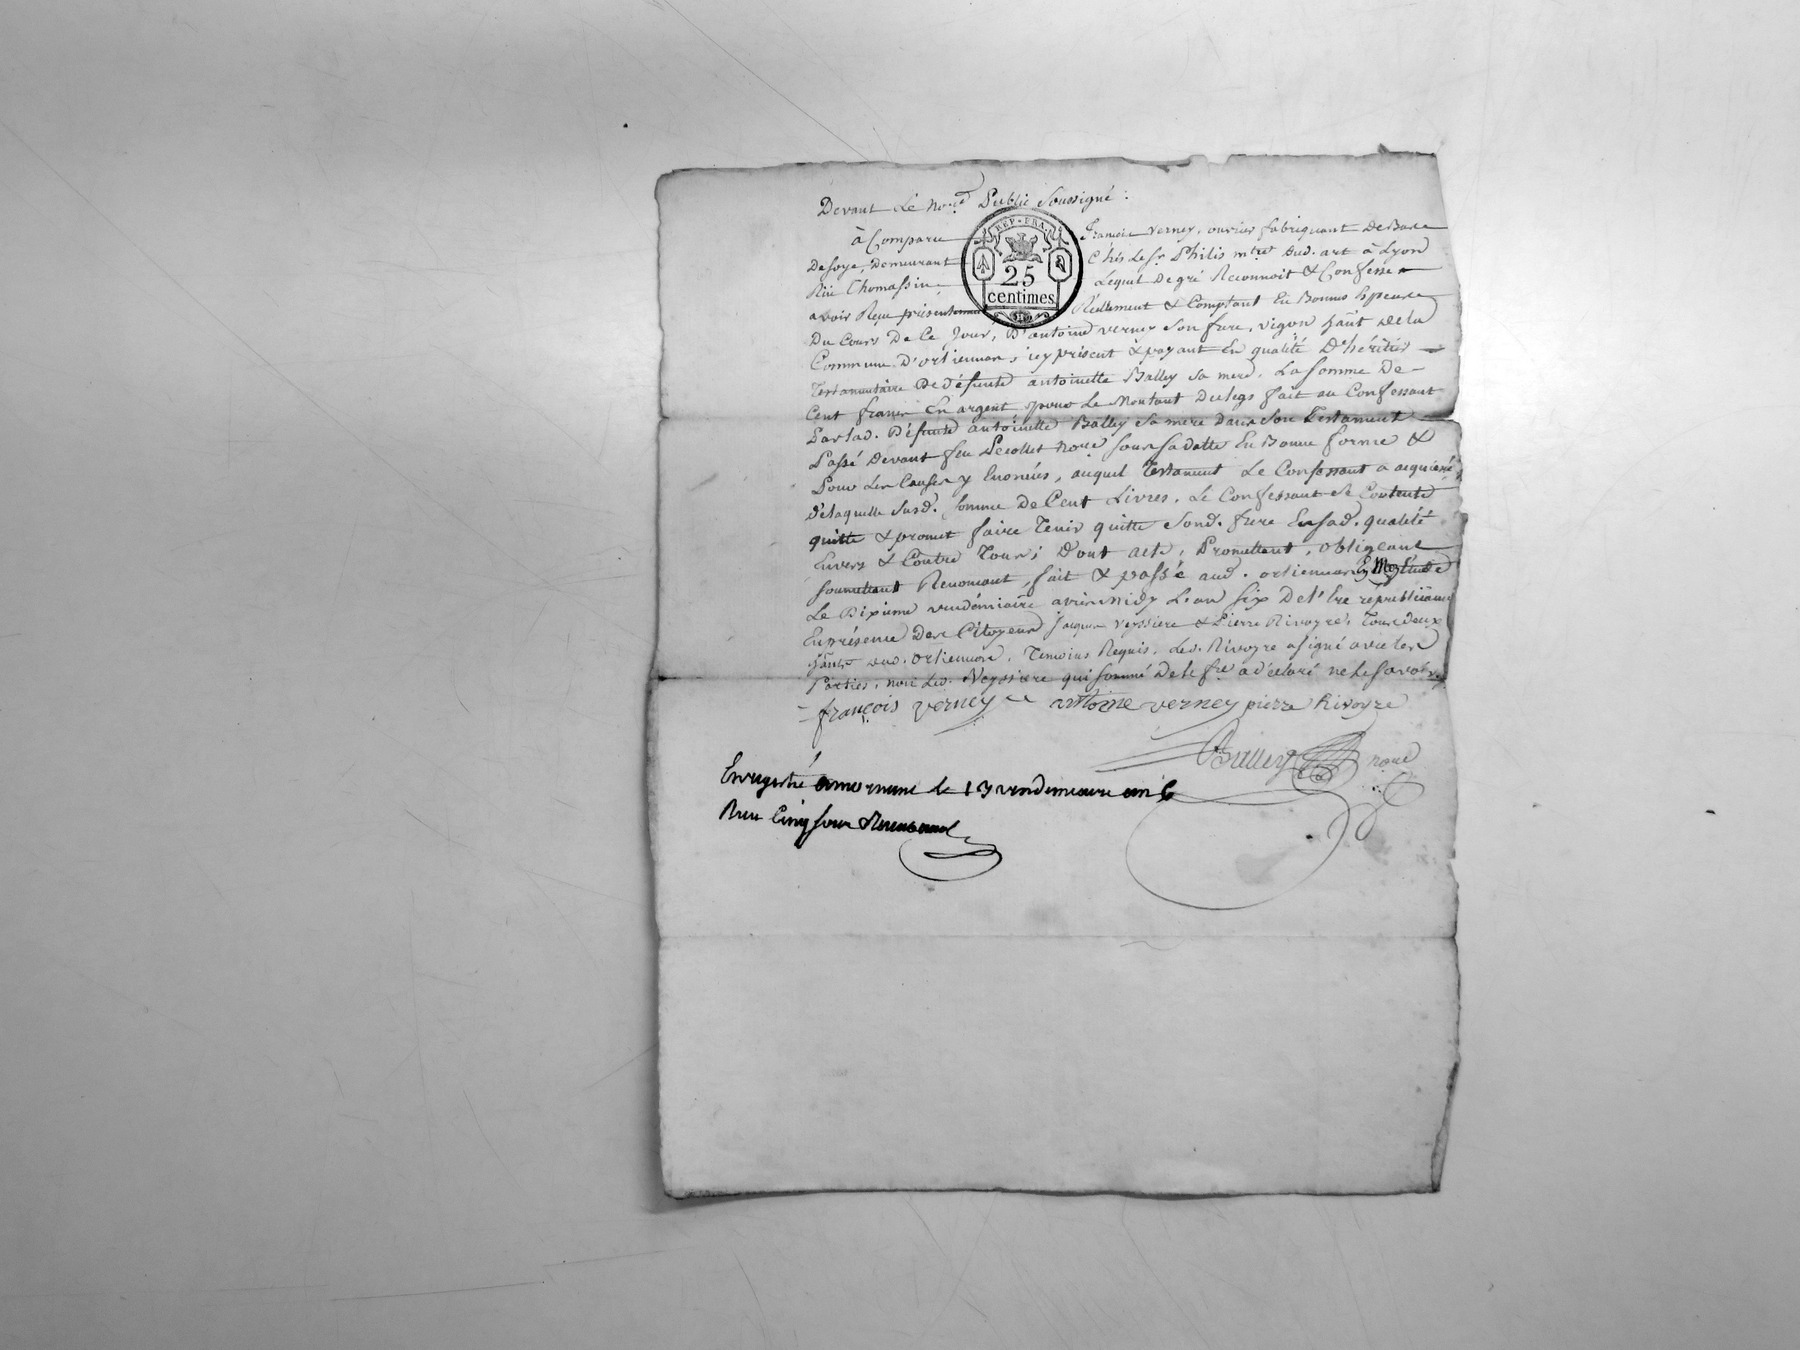 Devant Le no.re Public Soussigné :
REP. FRA.
25
centimes
à Comparu François verney, ouvrier fabriquant De Bas
De Soye, Demeurant Chés Le S.r Philis m.tre dud. art à Lyon
Rüe Thomassin, Lequel De gré Reconnoit & Confesse
avoir Reçu présentement Réellement & Comptant En Bonnes Espèces
Du Cours De Ce Jour, D'antoine verney Son frere, vigon hãnt de la
Commune D'orliennas, icy présent & payant En qualité D'héritier
Testamentaire De Défunte antoinette Balley Sa mere, La Somme De
Cent francs En argent, pour Le Montant Du legs fait au Confessant
Par lad. Défunte antoinette Balley Sa mere Dans Son Testament
Passé Devant feu Decollet no.re sous Sa datte En Bonne forme &
Pour Les Causes y Enoncées, auquel Testament Le Confessant a acquiescé
De laquelle Susd. Somme De Cent Livres, Le Confessant Se Contente
quitte & promet faire Tenir quitte Sond. frere En Sad. qualité
Envers & Contre Tous; Dont acte, Promettant, obligeant
Soumettant Renonçant, fait & passé aud. orliennas En Mon Etude
Le Dixieme vendémiaire après midy L'an Six De l'Ere républicaine
En présence Des Citoyens Jacques Veyssiere & Pierre Rivoyre, Tous Deux
hãnts aud. orliennas, Temoins Requis, Led. Rivoyre a signé avec les
Parties, non Led. Veyssiere qui Sommé De le f.re a déclaré ne le Savoir
françois verney antoine verney pierre Rivoyre
Balley no.re
Enregistré à mornant le 13 vendemiaire an 6
Reçu Cinq sous